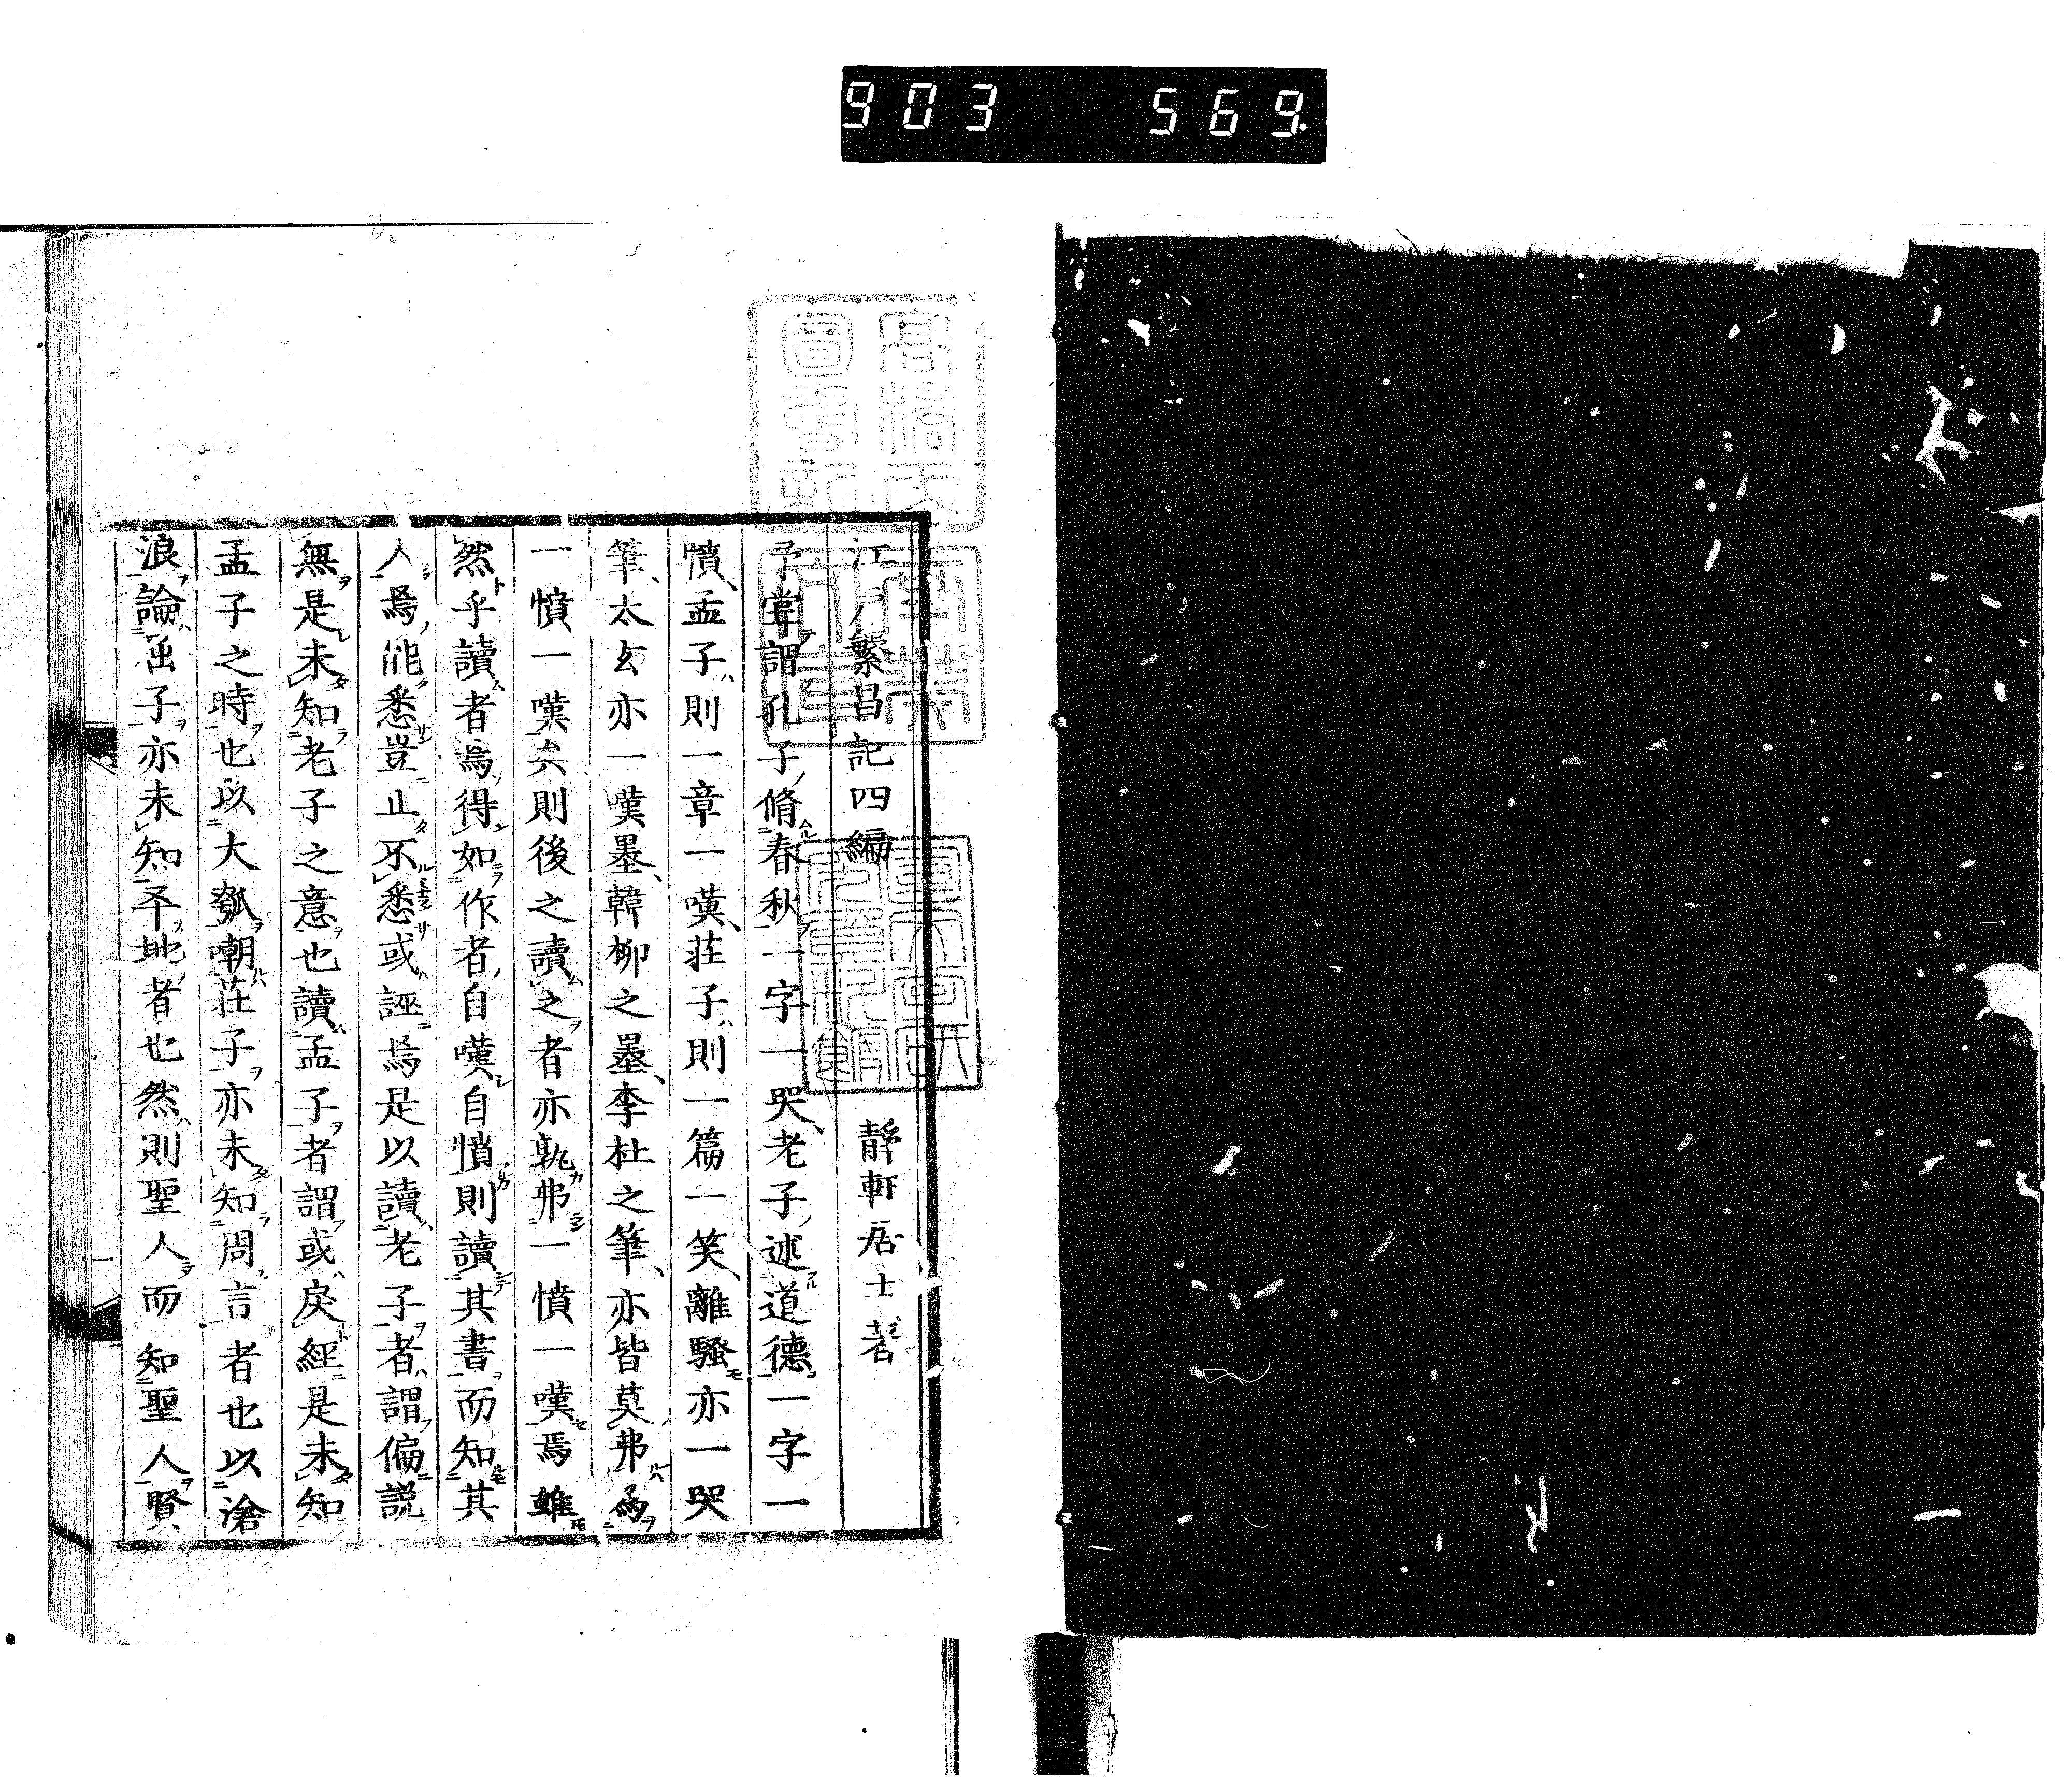 903 569
江戸繁昌記四編 靜軒居士著
予嘗謂孔子脩春秋一字一哭老子述道德一字一
憤孟子則一章一嘆莊子則一篇一笑離騷亦一哭
筆太玄亦一嘆墨韓柳之墨李杜之筆亦皆莫弗爲
一憤一嘆矣則後之讀之者亦孰弗一憤一嘆焉雖
然乎讀者焉得如作者自嘆自憤則讀其書而知其
人焉能悉豈止不悉或誣焉是以讀老子者謂偏説
無是未知老子之意也讀孟子者謂或戾經是未知
孟子之時也以大瓠嘲莊子亦未知周言者也以滄
浪論屈子亦未知平地者也然則聖人而知聖人賢